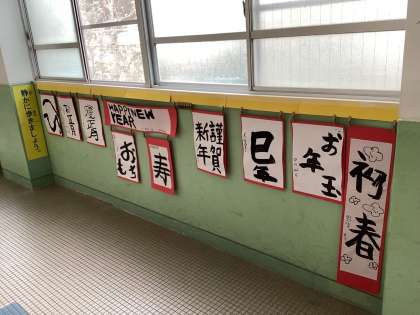 静かに歩きましょう。
ひ
HAPPY NEW
YEAR
おもち
寿
謹賀
新年
巳年
お年玉
初春